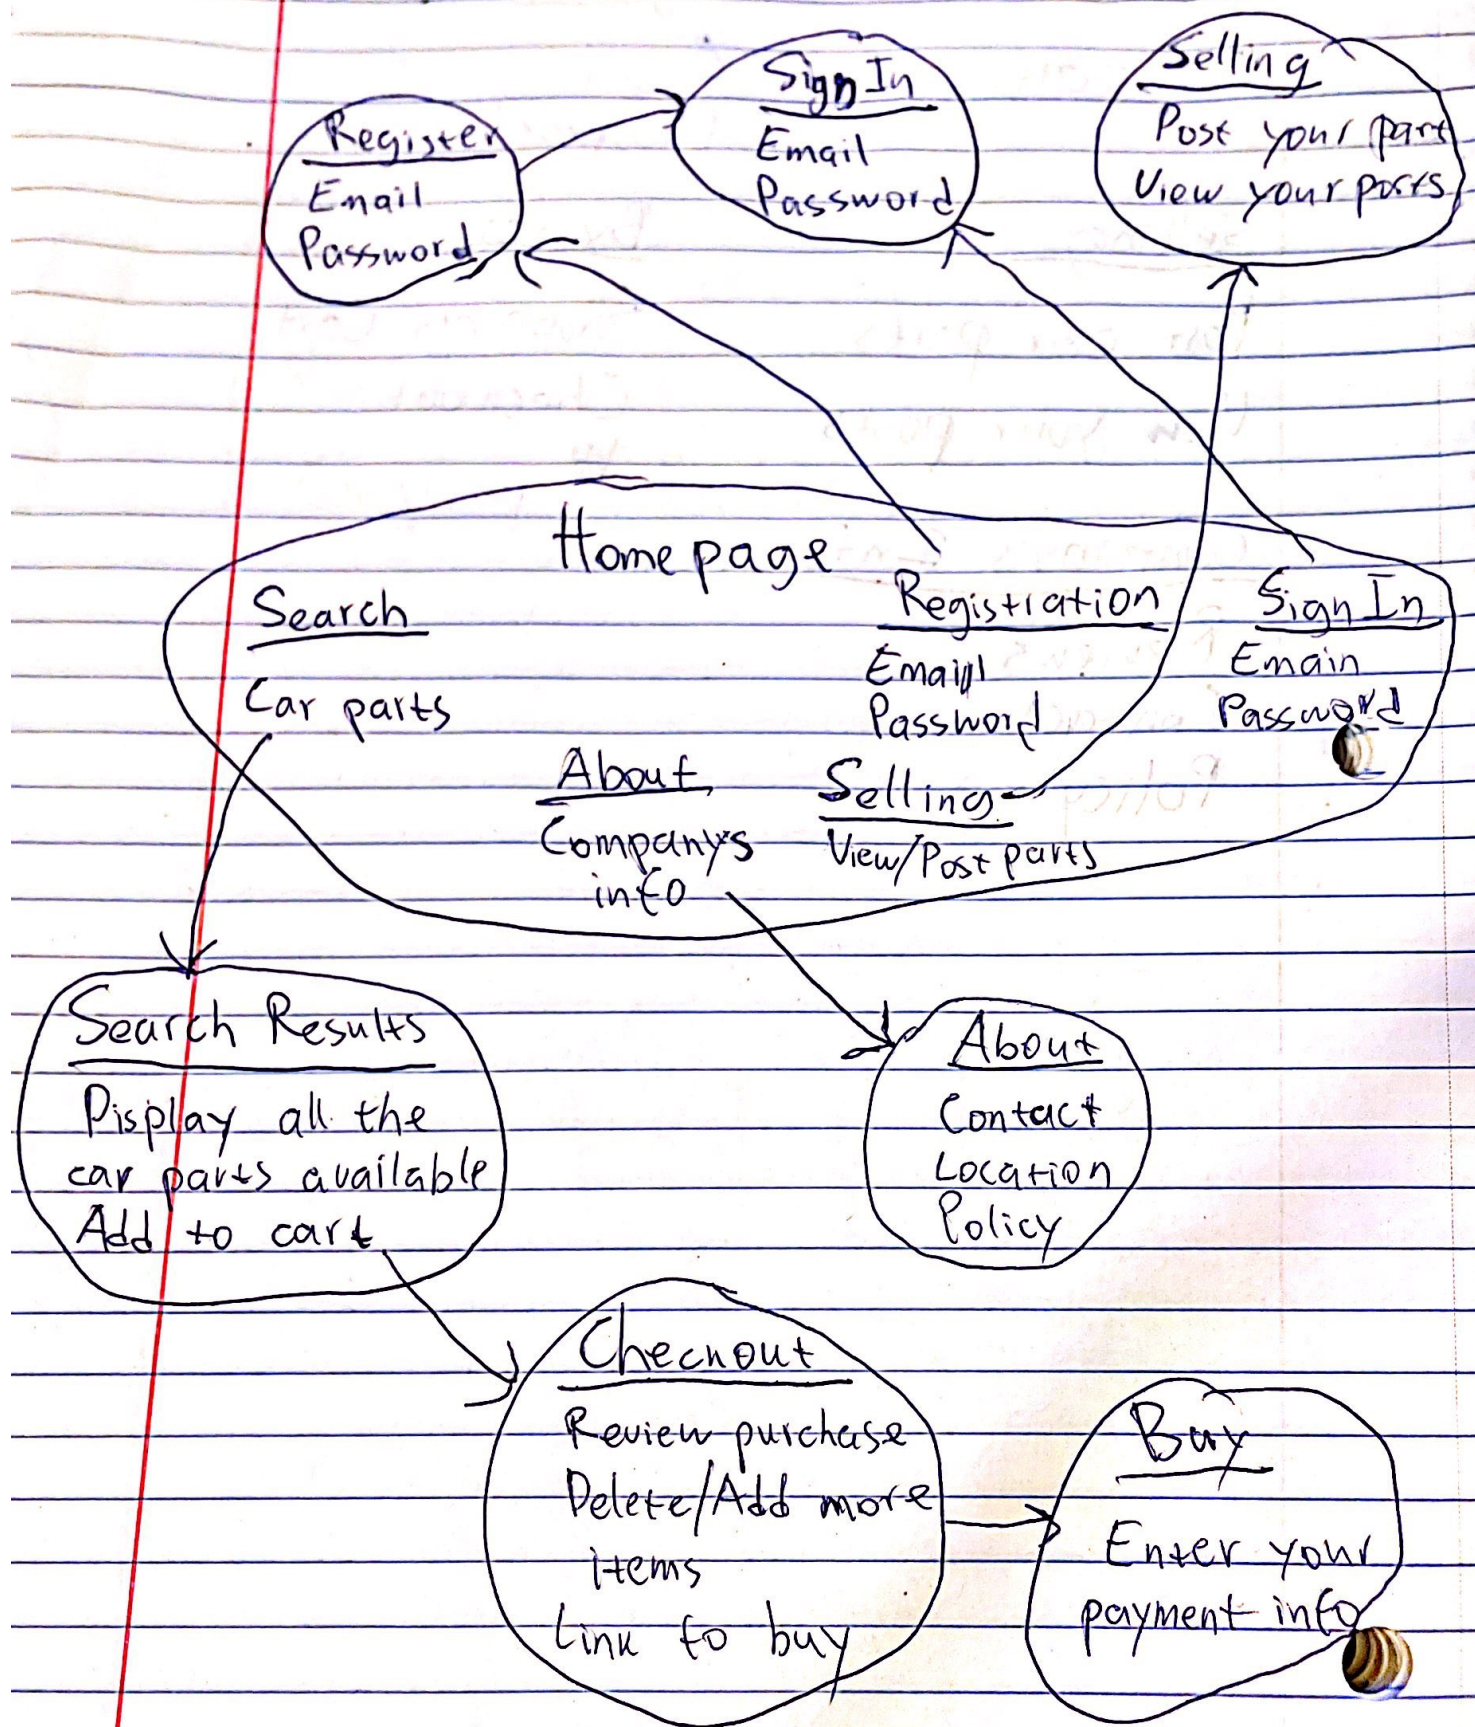 Register
Email
Password
Sign In
Email
Password
Selling
Post your part
View your parts
Home page
Search
Car parts
Registration
Email
Password
Sign In
Emain
Password
About
Company's
info
Selling
View/Post parts
Search Results
Display all the
car parts available
Add to cart
About
Contact
Location
Policy
Checkout
Review purchase
Delete/Add more
items
Link to buy
Buy
Enter your
payment info